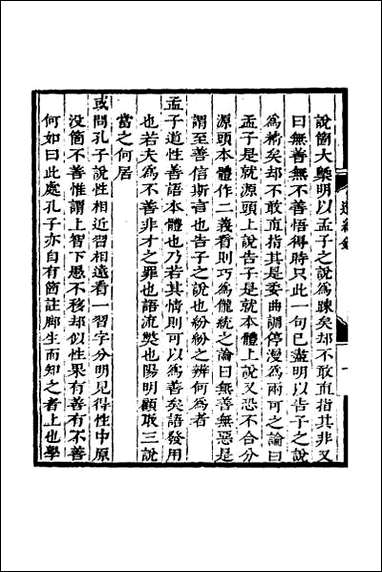 說箇大槩明以孟子之說為踈矣却不敢直指其非又
曰無善無不善悟得時只此一句已盡明以告子之說
為精矣却不敢直指其是委曲調停漫為兩可之論曰
孟子是就源頭上說告子是就本體上說又恐不合分
源頭本體作二義看則巧為儱統之論曰無善無惡是
謂至善信斯言也告子之說也紛紛之辨何為者
孟子道性善語本體也乃若其情則可以為善矣語發用
也若夫為不善非才之罪也語流獘也陽明顧取三說
當之何居
或問孔子說性相近習相遠看一習字分明見得性中原
没箇不善惟謂上智下愚不移却似性果有善有不善
何如曰此處孔子亦自有箇註脚生而知之者上也學